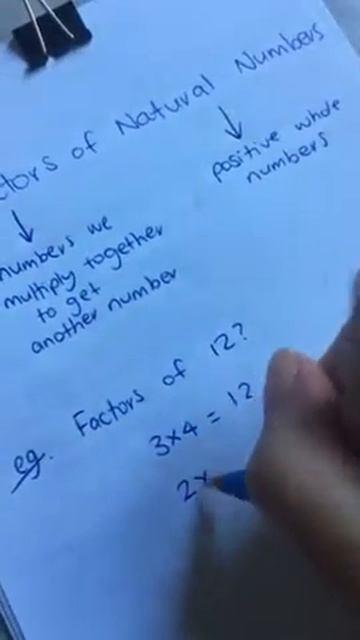 ctors of Natural Numbers
positive whole
numbers
numbers we
multiply together
to get
another number
eg. Factors of 12?
3x4 = 12
2x